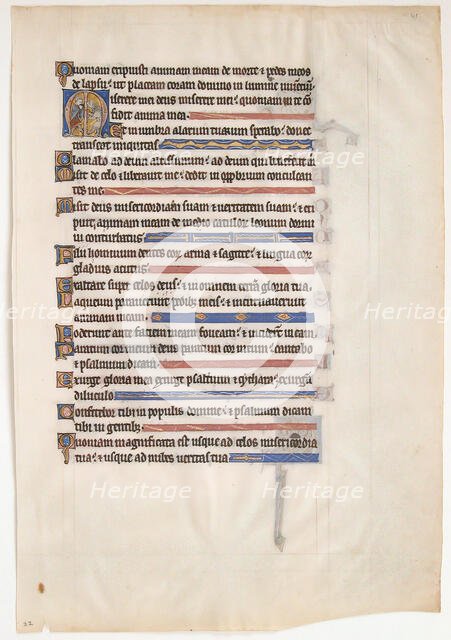 41
Quoniam eripuisti animam meam de morte & pedes meos
de lapsu ut placeam coram domino in lumine
Miserere mei deus miserere mei quoniam in te
fidit anima mea
Et in umbra alarum tuarum sperabo donec
transeat iniquitas
Clamabo ad deum altissimum ad deum qui
Misit de celo & liberavit me dedit in opprobrium conculcan
tes me
Misit deus misericordiam suam & veritatem suam & eri
puit animam meam de medio catulorum leonum
conturbatus
Filii hominum dentes eorum arma & sagitte & lingua eorum
gladius acutus
Exaltare super celos deus & in omnem terram gloria tua
Laqueum paraverunt pedibus meis & incurvaverunt
animam meam
Foderunt ante faciem meam foveam & inciderunt in eam
Paratum cor meum deus paratum cor meum cantabo
& psalmum dicam
Exurge gloria mea exurge psalterium & cythara exurgam
diluculo
Confitebor tibi in populis domine & psalmum dicam
tibi in gentibus
Quoniam magnificata est usque ad celos misericordia
tua & usque ad nubes veritas tua
Heritage
Heritage
Heritage
Heritage
Heritage
Heritage
32